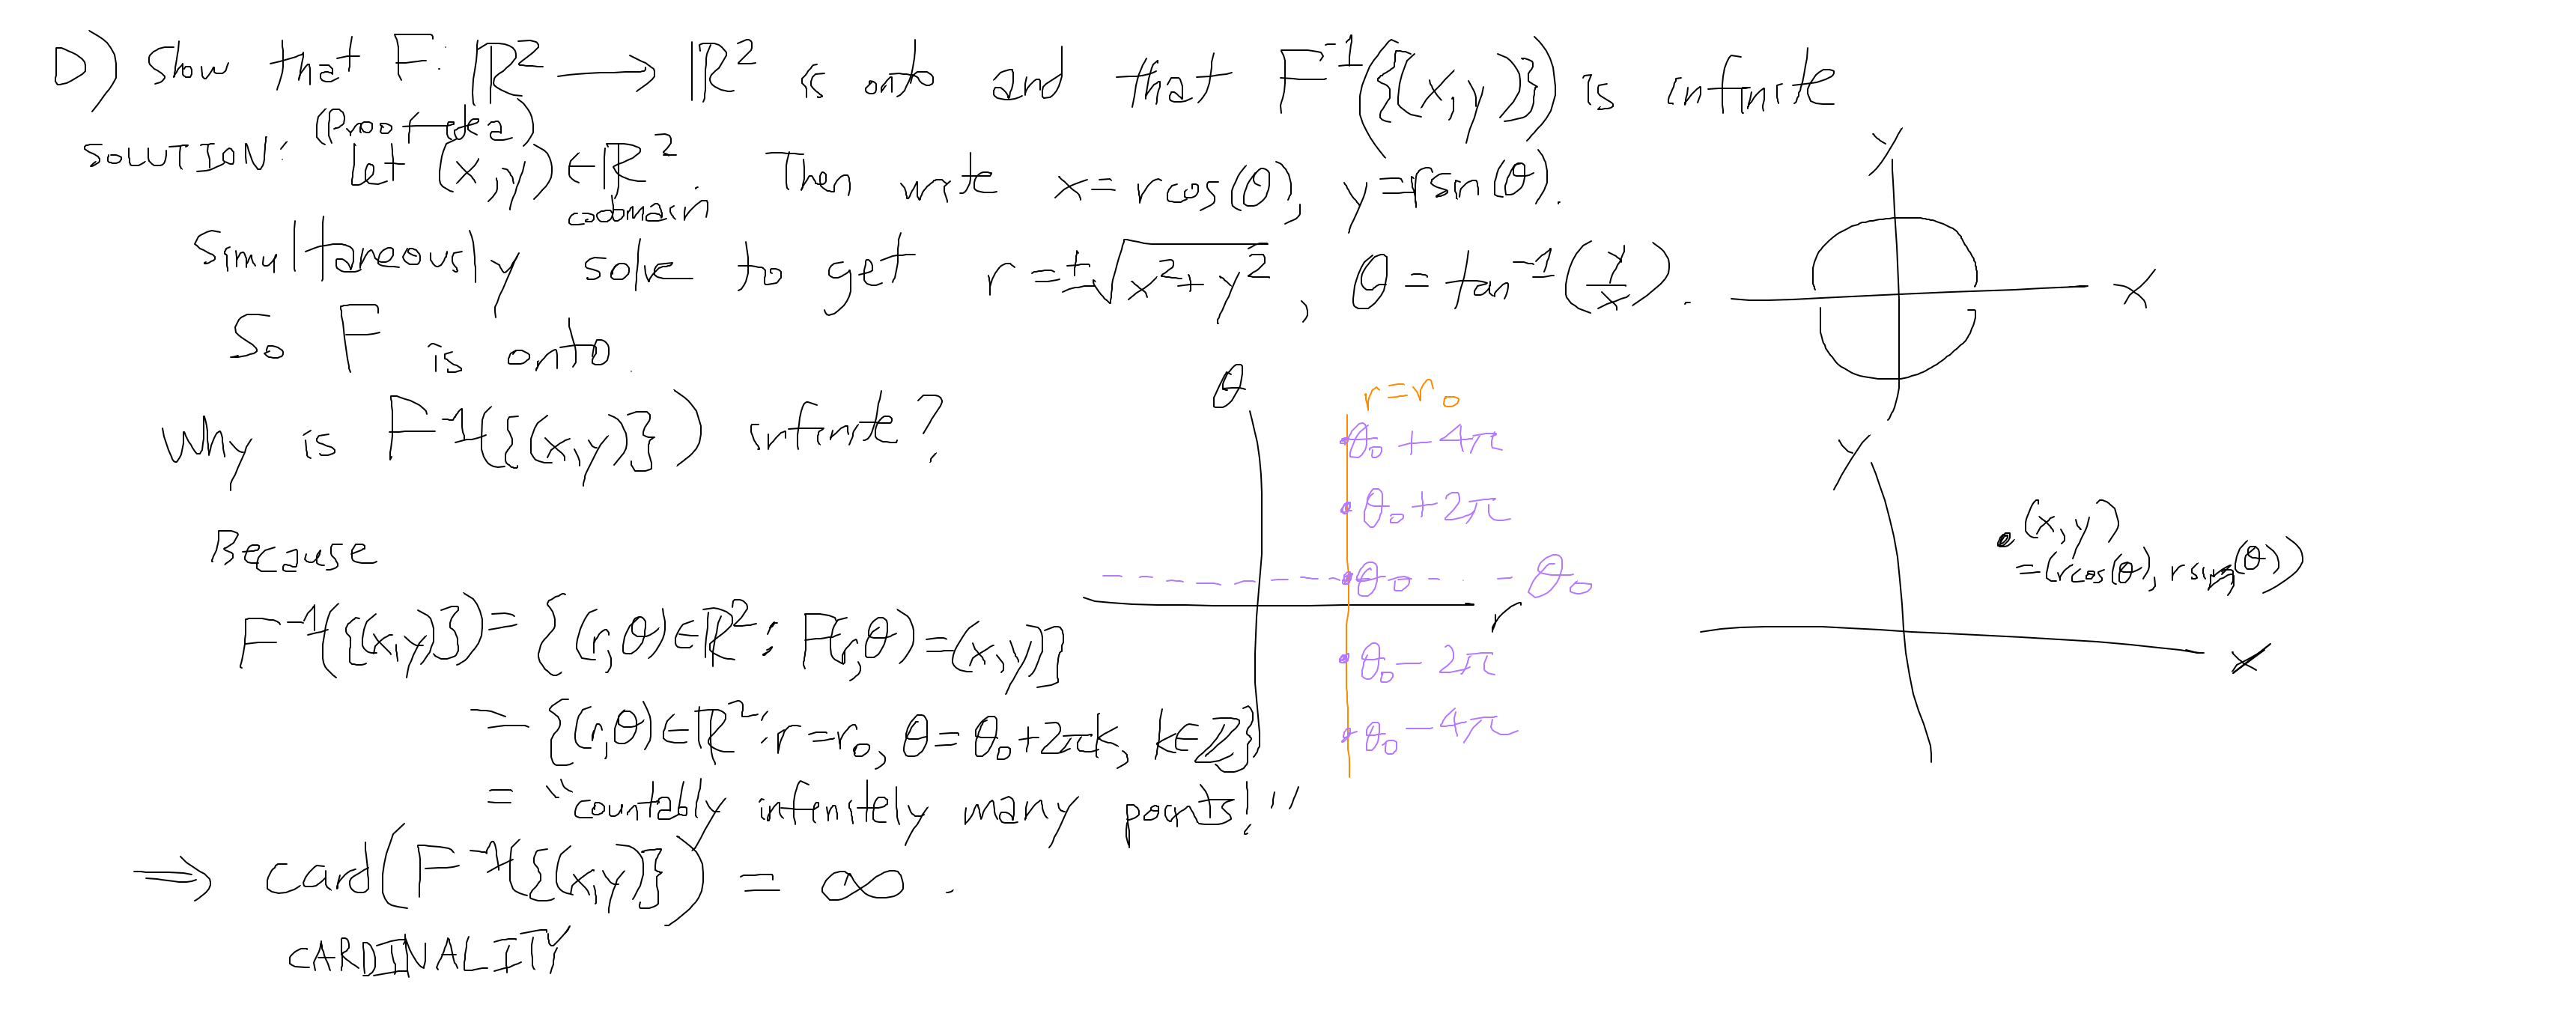 D) Show that F: ℝ² ⟶ ℝ² is onto and that F⁻¹({(x,y)}) is infinite
SOLUTION: (Proof-idea)
Let (x,y) ∈ ℝ². Then write x = rcos(θ), y = rsin(θ).
codomain
Simultaneously solve to get r = ±√(x²+y²), θ = tan⁻¹(y/x).
So F is onto.
Why is F⁻¹({(x,y)}) infinite?
Because
F⁻¹({(x,y)}) = {(r,θ) ∈ ℝ² : F(r,θ) = (x,y)}
= {(r,θ) ∈ ℝ² : r = r₀, θ = θ₀+2πk, k ∈ ℤ}
= "countably infinitely many points!"
⟹ card(F⁻¹({(x,y)})) = ∞.
CARDINALITY
θ
r = r₀
θ₀ + 4π
θ₀ + 2π
θ₀
θ₀
r
θ₀ − 2π
θ₀ − 4π
y
x
y
(x,y)
= (rcos(θ), rsin(θ))
x